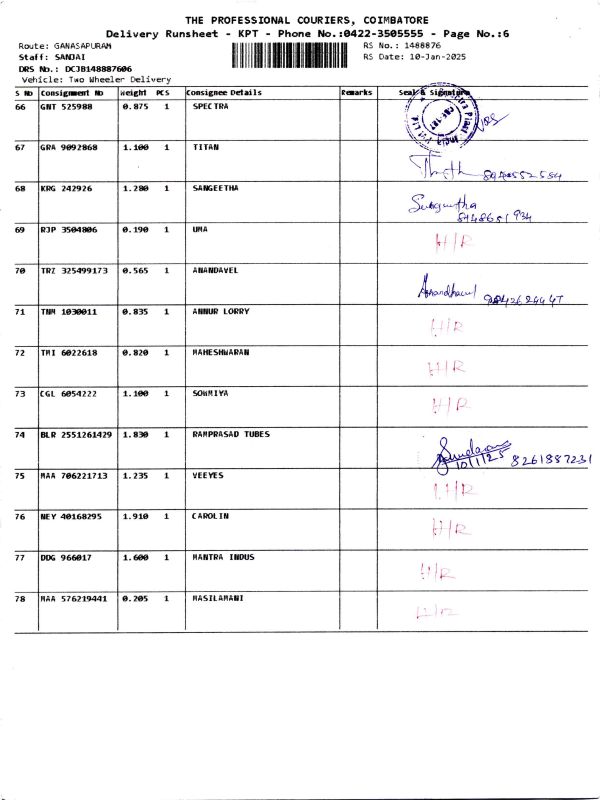 THE PROFESSIONAL COURIERS, COIMBATORE
Delivery Runsheet - KPT - Phone No.:0422-3505555 - Page No.:6
Route: GANASAPURAM RS No.: 1488876
Staff: SANJAI RS Date: 10-Jan-2025
DRS No.: DCJB148887606
Vehicle: Two Wheeler Delivery
S No Consignment No Weight PCS Consignee Details Remarks Seal & Signature
66 GNT 525988 0.875 1 SPECTRA
67 GRA 9092868 1.100 1 TITAN
68 KRG 242926 1.280 1 SANGEETHA Sangeetha
69 RJP 3504806 0.190 1 UMA H/R
70 TRZ 325499173 0.565 1 ANANDAVEL
71 TNM 1030011 0.835 1 ANNUR LORRY H/R
72 TMI 6022618 0.820 1 MAHESHWARAN H/R
73 CGL 6054222 1.100 1 SOWMIYA H/R
74 BLR 2551261429 1.830 1 RAMPRASAD TUBES
10/1/25 8261887231
75 MAA 706221713 1.235 1 VEEYES H/R
76 NEY 40168295 1.910 1 CAROLIN H/R
77 DDG 966017 1.600 1 MANTRA INDUS H/R
78 MAA 576219441 0.205 1 MASILAMANI H/R